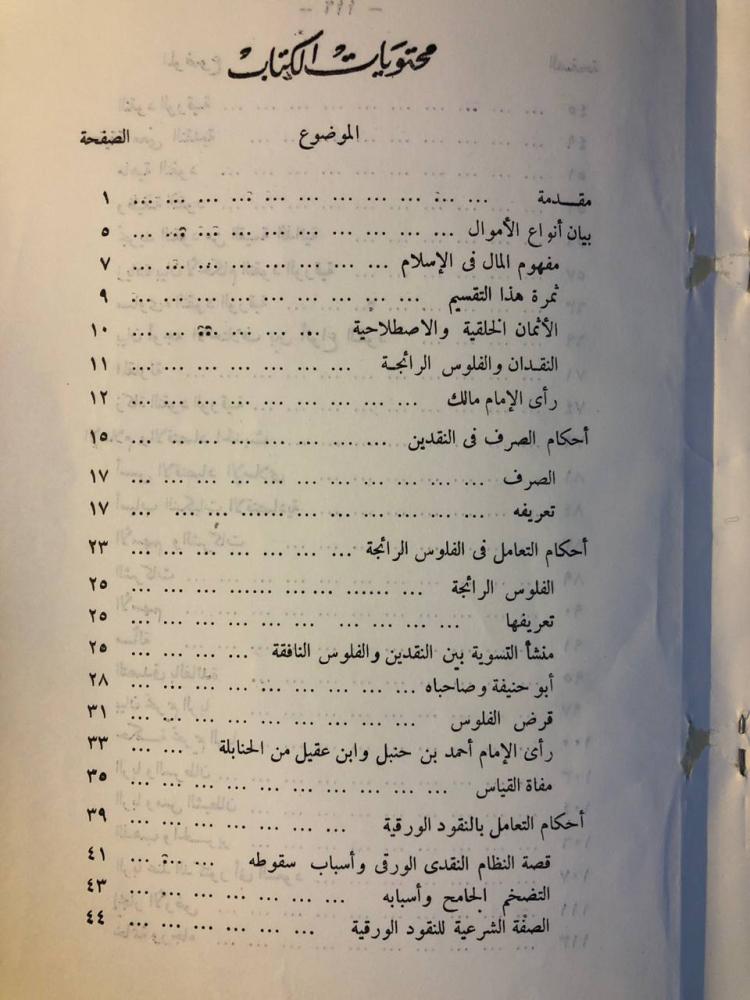 محتويات الكتاب
الموضوع الصفحة
مقدمة ... ... ... ... ... ... ... ... ... ... ١
بيان أنواع الأموال ... ... ... ... ... ... ... ... ... ... ٥
مفهوم المال فى الإسلام ... ... ... ... ... ... ... ... ٧
ثمرة هذا التقسيم ... ... ... ... ... ... ... ... ٩
الأثمان الخلقية والاصطلاحية ... ... ... ... ... ... ١٠
النقدان والفلوس الرائجة ... ... ... ... ... ... ... ١١
رأى الإمام مالك ... ... ... ... ... ... ... ... ١٢
أحكام الصرف فى النقدين ... ... ... ... ... ... ... ... ١٥
الصرف ... ... ... ... ... ... ... ... ... ... ١٧
تعريفه ... ... ... ... ... ... ... ... ... ... ١٧
أحكام التعامل فى الفلوس الرائجة ... ... ... ... ... ... ... ٢٣
الفلوس الرائجة ... ... ... ... ... ... ... ... ٢٥
تعريفها ... ... ... ... ... ... ... ... ... ٢٥
منشأ التسوية بين النقدين والفلوس النافقة ... ... ... ... ٢٥
أبو حنيفة وصاحباه ... ... ... ... ... ... ... ... ... ٢٨
قرض الفلوس ... ... ... ... ... ... ... ... ٣١
رأى الإمام أحمد بن حنبل وابن عقيل من الحنابلة ... ... ٣٣
مفاة القياس ... ... ... ... ... ... ... ... ... ٣٥
أحكام التعامل بالنقود الورقية ... ... ... ... ... ... ... ٣٩
قصة النظام النقدى الورقى وأسباب سقوطه ... ... ... ٤١
التضخم الجامح وأسبابه ... ... ... ... ... ... ... ٤٣
الصفة الشرعية للنقود الورقية ... ... ... ... ... ... ٤٤